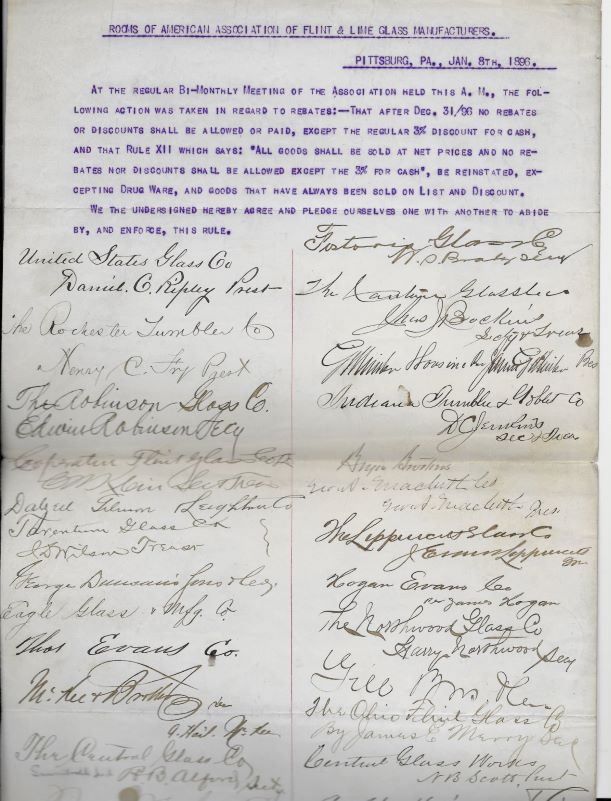 ROOMS OF AMERICAN ASSOCIATION OF FLINT & LIME GLASS MANUFACTURERS.
PITTSBURG, PA., JAN. 8TH, 1896.
AT THE REGULAR BI-MONTHLY MEETING OF THE ASSOCIATION HELD THIS A. M., THE FOL-
LOWING ACTION WAS TAKEN IN REGARD TO REBATES:—THAT AFTER DEC. 31/96 NO REBATES
OR DISCOUNTS SHALL BE ALLOWED OR PAID, EXCEPT THE REGULAR 3% DISCOUNT FOR CASH,
AND THAT RULE XII WHICH SAYS: "ALL GOODS SHALL BE SOLD AT NET PRICES AND NO RE-
BATES NOR DISCOUNTS SHALL BE ALLOWED EXCEPT THE 3% FOR CASH", BE REINSTATED, EX-
CEPTING DRUG WARE, AND GOODS THAT HAVE ALWAYS BEEN SOLD ON LIST AND DISCOUNT.
WE THE UNDERSIGNED HEREBY AGREE AND PLEDGE OURSELVES ONE WITH ANOTHER TO ABIDE
BY, AND ENFORCE, THIS RULE.
United States Glass Co
Daniel C. Ripley Prest
The Rochester Tumbler Co
Henry C. Fry Prest
The Robinson Glass Co.
Edwin Robinson Secy
Cooperative Flint Glass Co
Dalzell Gilmore & Leighton Co
Tarentum Glass Co
Wilson Treas
George Duncan's Sons & Co
Eagle Glass & Mfg. Co
Thos Evans Co.
McKee & Brothers
The Central Glass Co
Fostoria Glass Co
W. S. Brady Secy
The
Secy & Treas
Indiana Tumbler & Goblet Co
D C Jenkins
Sec & Treas
Bryce Brothers
Geo A Macbeth Co
Geo A Macbeth Pres
The Lippincott Glass Co
Lippincott
Hogan Evans Co
per James Hogan
The Northwood Glass Co
Harry Northwood Secy
Gill Bros
The Ohio Flint Glass Co
By James E Merry Sec
Central Glass Works
N B Scott, Prest